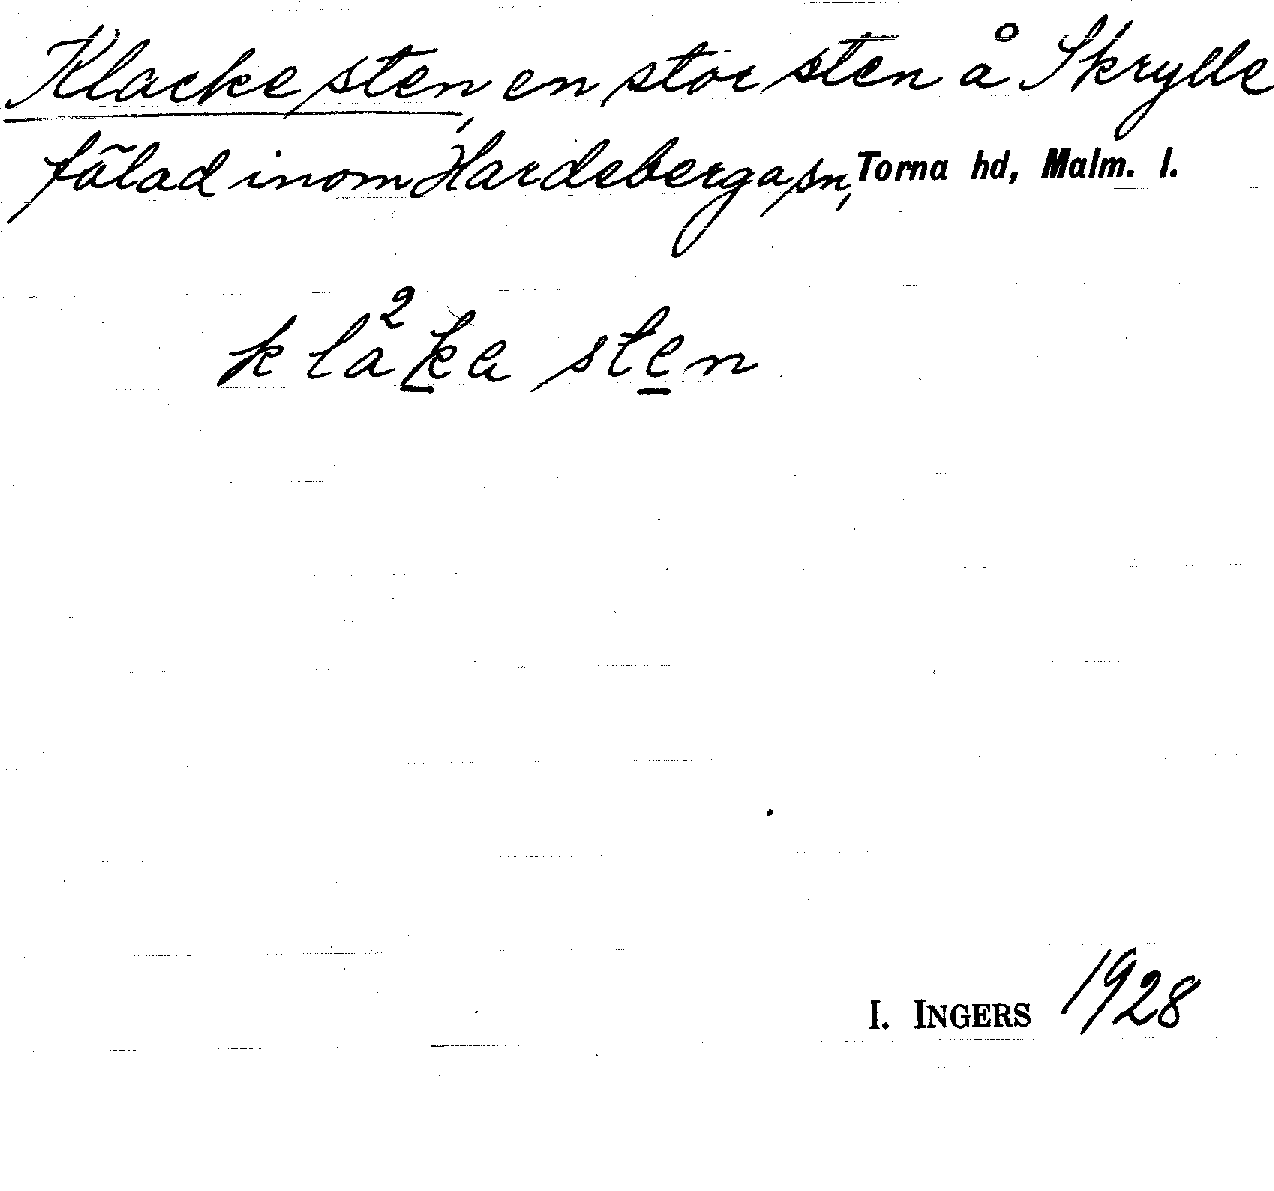 Klacke sten, en stor sten å Skrylle
fälad inom Hardeberga sn, Torna hd, Malm. l.
kla²ka sten
I. INGERS 1928